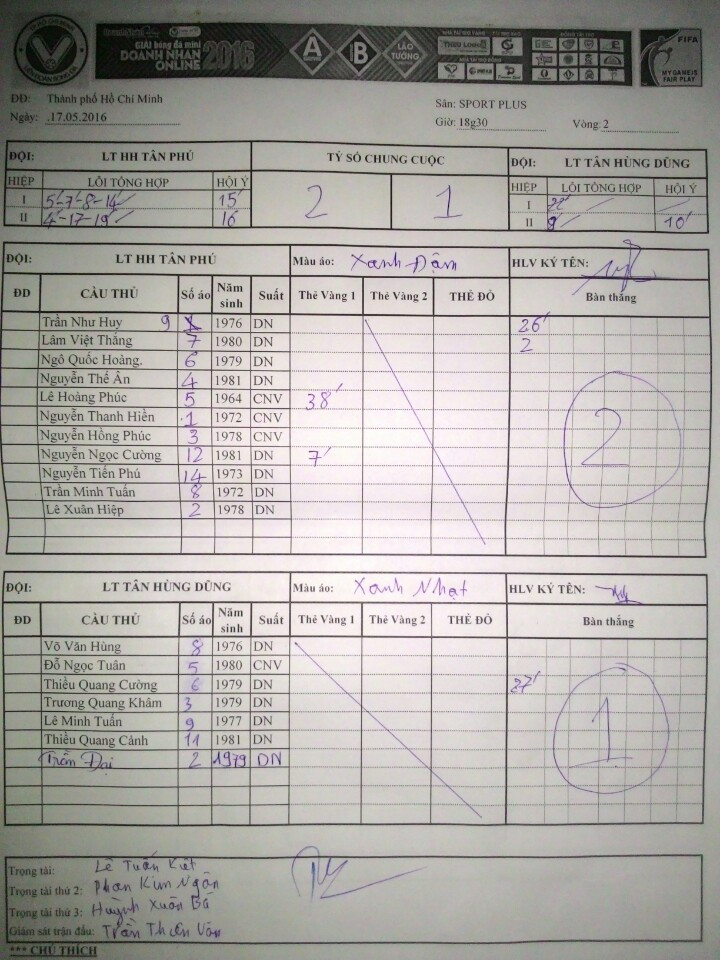 GIẢI bóng đá mini
DOANH NHÂN
ONLINE 2016
A B LÀO TƯỜNG
FIFA
MY GAME IS
FAIR PLAY
ĐĐ: Thành phố Hồ Chí Minh
Sân: SPORT PLUS
Ngày: .17.05.2016
Giờ: 18g30 Vòng: 2
ĐỘI: LT HH TÂN PHÚ TỶ SỐ CHUNG CUỘC ĐỘI: LT TÂN HÙNG DŨNG
HIỆP LỖI TỔNG HỢP HỘI Ý 2 1 HIỆP LỖI TỔNG HỢP HỘI Ý
I 5-7-8-14 15' I 22'
II 4-17-19' 16 II 9' 10'
ĐỘI: LT HH TÂN PHÚ Màu áo: Xanh Đậm HLV KÝ TÊN:
ĐD CẦU THỦ Số áo Năm sinh Suất Thẻ Vàng 1 Thẻ Vàng 2 THẺ ĐỎ Bàn thắng
Trần Như Huy 9 1976 DN 26'
Lâm Việt Thắng 7 1980 DN 2
Ngô Quốc Hoàng. 6 1979 DN
Nguyễn Thế Ân 4 1981 DN
Lê Hoàng Phúc 5 1964 CNV 38'
Nguyễn Thanh Hiền 1 1972 CNV
Nguyễn Hồng Phúc 3 1978 CNV
Nguyễn Ngọc Cường 12 1981 DN 7'
Nguyễn Tiến Phú 14 1973 DN
Trần Minh Tuấn 8 1972 DN
Lê Xuân Hiệp 2 1978 DN
2
ĐỘI: LT TÂN HÙNG DŨNG Màu áo: Xanh Nhạt HLV KÝ TÊN:
ĐD CẦU THỦ Số áo Năm sinh Suất Thẻ Vàng 1 Thẻ Vàng 2 THẺ ĐỎ Bàn thắng
Võ Văn Hùng 8 1976 DN
Đỗ Ngọc Tuân 5 1980 CNV
Thiều Quang Cường 6 1979 DN 27'
Trương Quang Khâm 3 1979 DN
Lê Minh Tuấn 9 1977 DN
Thiều Quang Cảnh 11 1981 DN
Trần Đại 2 1979 DN
1
Trọng tài: Lê Tuấn Kiệt
Trọng tài thứ 2: Phan Kim Ngân
Trọng tài thứ 3: Huỳnh Xuân Bá
Giám sát trận đấu: Trần Thiên Vân
*** CHÚ THÍCH